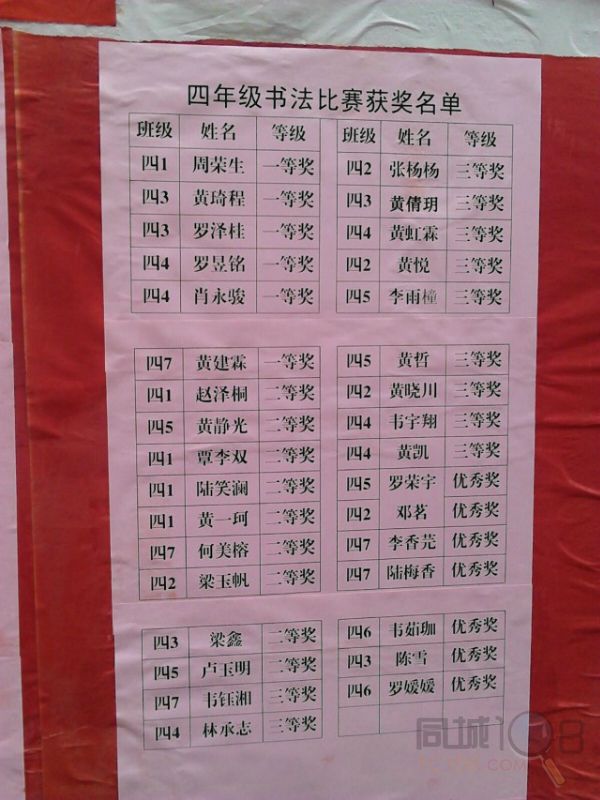 四年级书法比赛获奖名单
班级 姓名 等级 班级 姓名 等级
四1 周荣生 一等奖 四2 张杨杨 三等奖
四3 黄琦程 一等奖 四3 黄倩玥 三等奖
四3 罗泽桂 一等奖 四4 黄虹霖 三等奖
四4 罗昱铭 一等奖 四2 黄悦 三等奖
四4 肖永骏 一等奖 四5 李雨橦 三等奖
四7 黄建霖 一等奖 四5 黄哲 三等奖
四1 赵泽桐 二等奖 四2 黄晓川 三等奖
四5 黄静光 二等奖 四4 韦宇翔 三等奖
四1 覃李双 二等奖 四4 黄凯 三等奖
四1 陆笑澜 二等奖 四5 罗荣宇 优秀奖
四1 黄一珂 二等奖 四2 邓茗 优秀奖
四7 何美榕 二等奖 四7 李香芫 优秀奖
四2 梁玉帆 二等奖 四7 陆梅香 优秀奖
四3 梁鑫 二等奖 四6 韦茹珈 优秀奖
四5 卢玉明 二等奖 四3 陈雪 优秀奖
四7 韦钰湘 三等奖 四6 罗媛媛 优秀奖
四4 林承志 三等奖
同城108